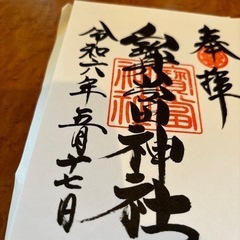 奉拝
神社
令和六年五月廿七日